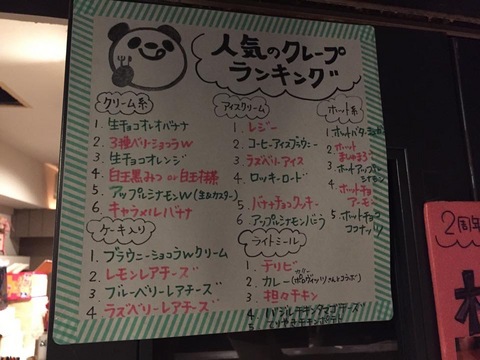 人気のクレープ
ランキング
クリーム系
1. 生チョコオレオバナナ
2. 3種ベリーショコラW
3. 生チョコオレンジ
4. 白玉黒みつ or 白玉抹茶
5. アップルシナモンW(生&カスター)
6. キャラメルバナナ
アイスクリーム
1. レジー
2. コーヒーアイスブラウニー
3. ラズベリーアイス
4. ロッキーロード
5. バナナチョコクッキー
6. アップルシナモンバニラ
ホット系
1. ホットバターシュガー
2. ホット
ましゅまろ
3. ホットアップル
シナモン
4. ホットチョコ
アーモ
5. ホットチョコ
ココナッツ
ケーキ入り
1. ブラウニーショコラWクリーム
2. レモンレアチーズ
3. ブルーベリーレアチーズ
4. ラズベリーレアチーズ
ライトミール
1. チリビ
2. カレー
3. 担々チキン
4. バジルチキンタマゴチーズ
5. てりやきチキンポテト
2周年